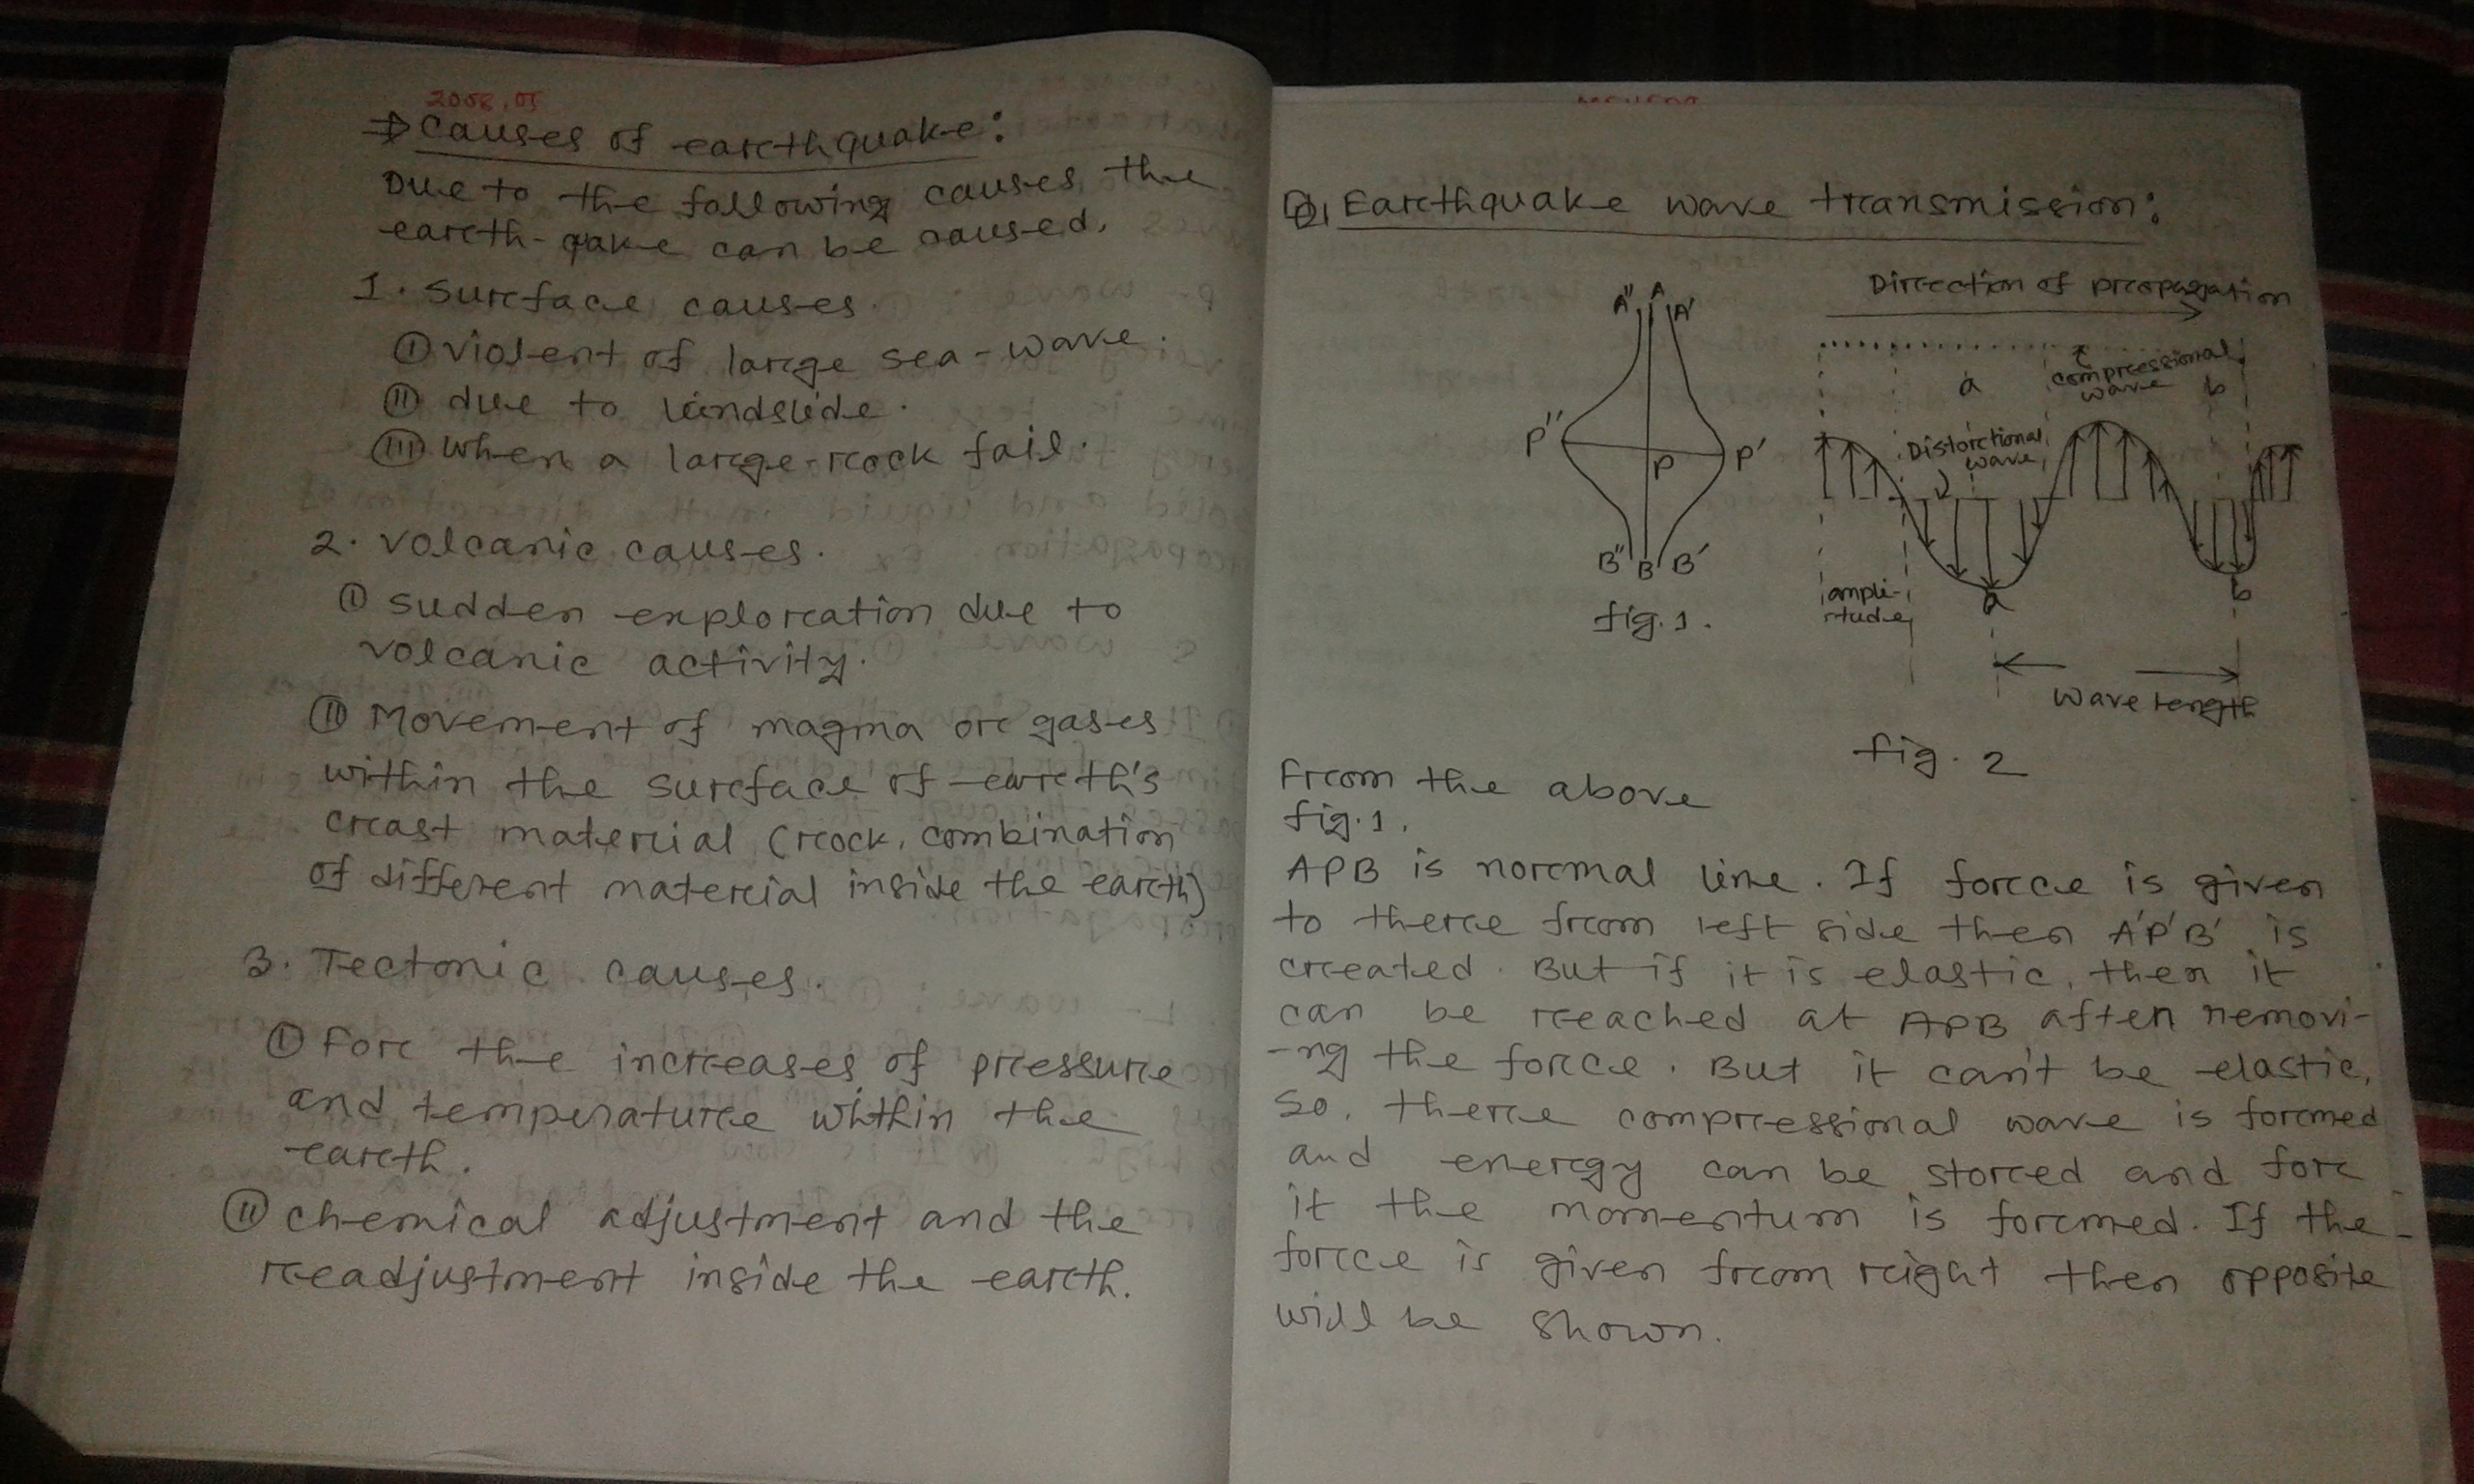 2008, 05
⇒ causes of earthquake:
Due to the following causes the
earth-qake can be caused.
1. surface causes.
(i) violent of large sea-wave.
(ii) due to landslide.
(iii) when a large-rock fail.
2. volcanic causes.
(i) sudden exploration due to
volcanic activity.
(ii) Movement of magma or gases
within the surface of earth's
crast material (rock, combination
of different material inside the earth)
3. Tectonic causes.
(i) for the increases of pressure
and temperature whthin the
earth.
(ii) chemical adjustment and the
readjustment inside the earth.
Earthquake wave transmission:
Direction of propagation
A" A A'
compressional
wave
a
b
P" P P'
Distortional
wave
B" B B'
ampli-
tude
a
b
fig. 1.
wave length
fig. 2
From the above
fig. 1.
APB is normal line. If force is given
to there from left side then A'P'B' is
created. But if it is elastic, then it
can be reached at APB after removi-
-ng the force. But it can't be elastic,
so, there compressional wave is formed
and energy can be stored and for
it the momentum is formed. If the
force is given from right then opposite
will be shown.